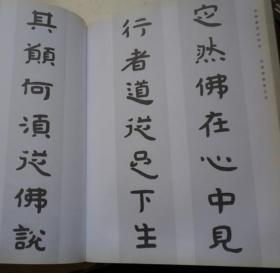 定然佛在心中見
行者道從足下生
其顛何須從佛說